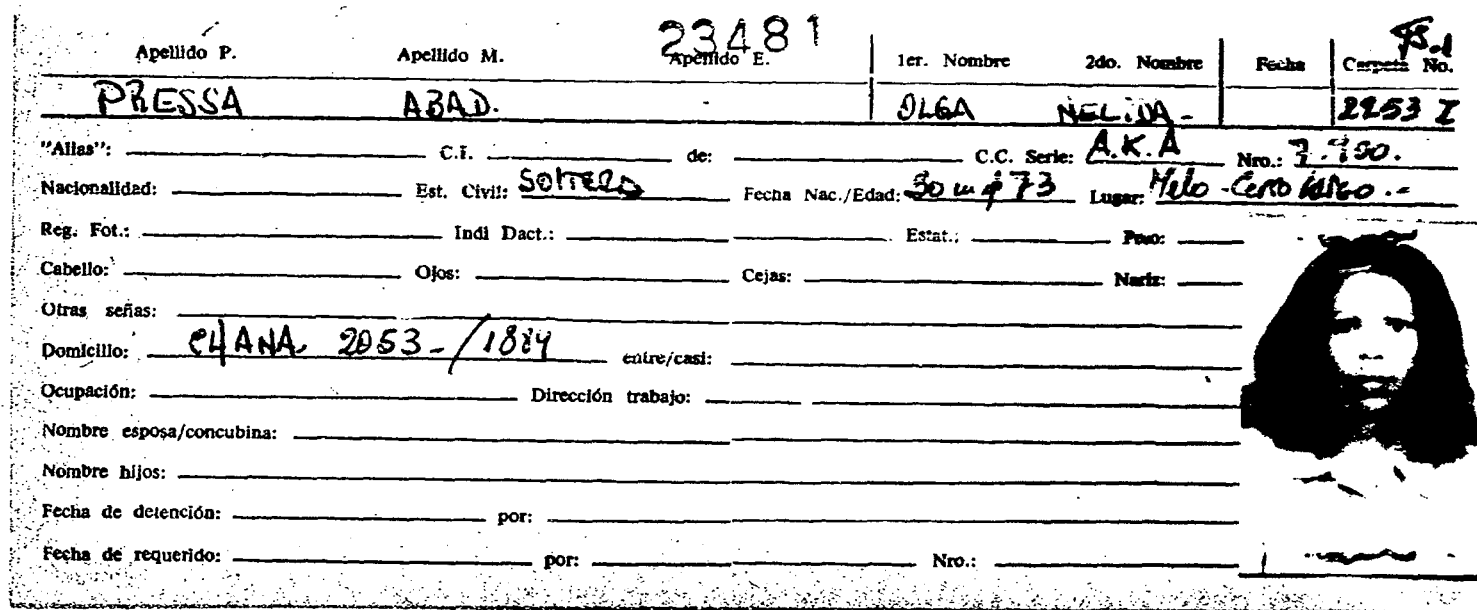 23481
Apellido P. Apellido M. Apellido E. 1er. Nombre 2do. Nombre Fecha Carpeta No.
PRESSA ABAD. OLGA NELIDA - 2253
"Alias": C.I. de: C.C. Serie: A.K.A Nro.:
Nacionalidad: Est. Civil: Soltera Fecha Nac./Edad: 30 73 Lugar: Melo - Cerro Largo.-
Reg. Fot.: Indi Dact.: Estat.: Peso:
Cabello: Ojos: Cejas: Nariz:
Otras señas:
Domicilio: CHANA. 2053-/1884 entre/casi:
Ocupación: Dirección trabajo:
Nombre esposa/concubina:
Nombre hijos:
Fecha de detención: por:
Fecha de requerido: por: Nro.: